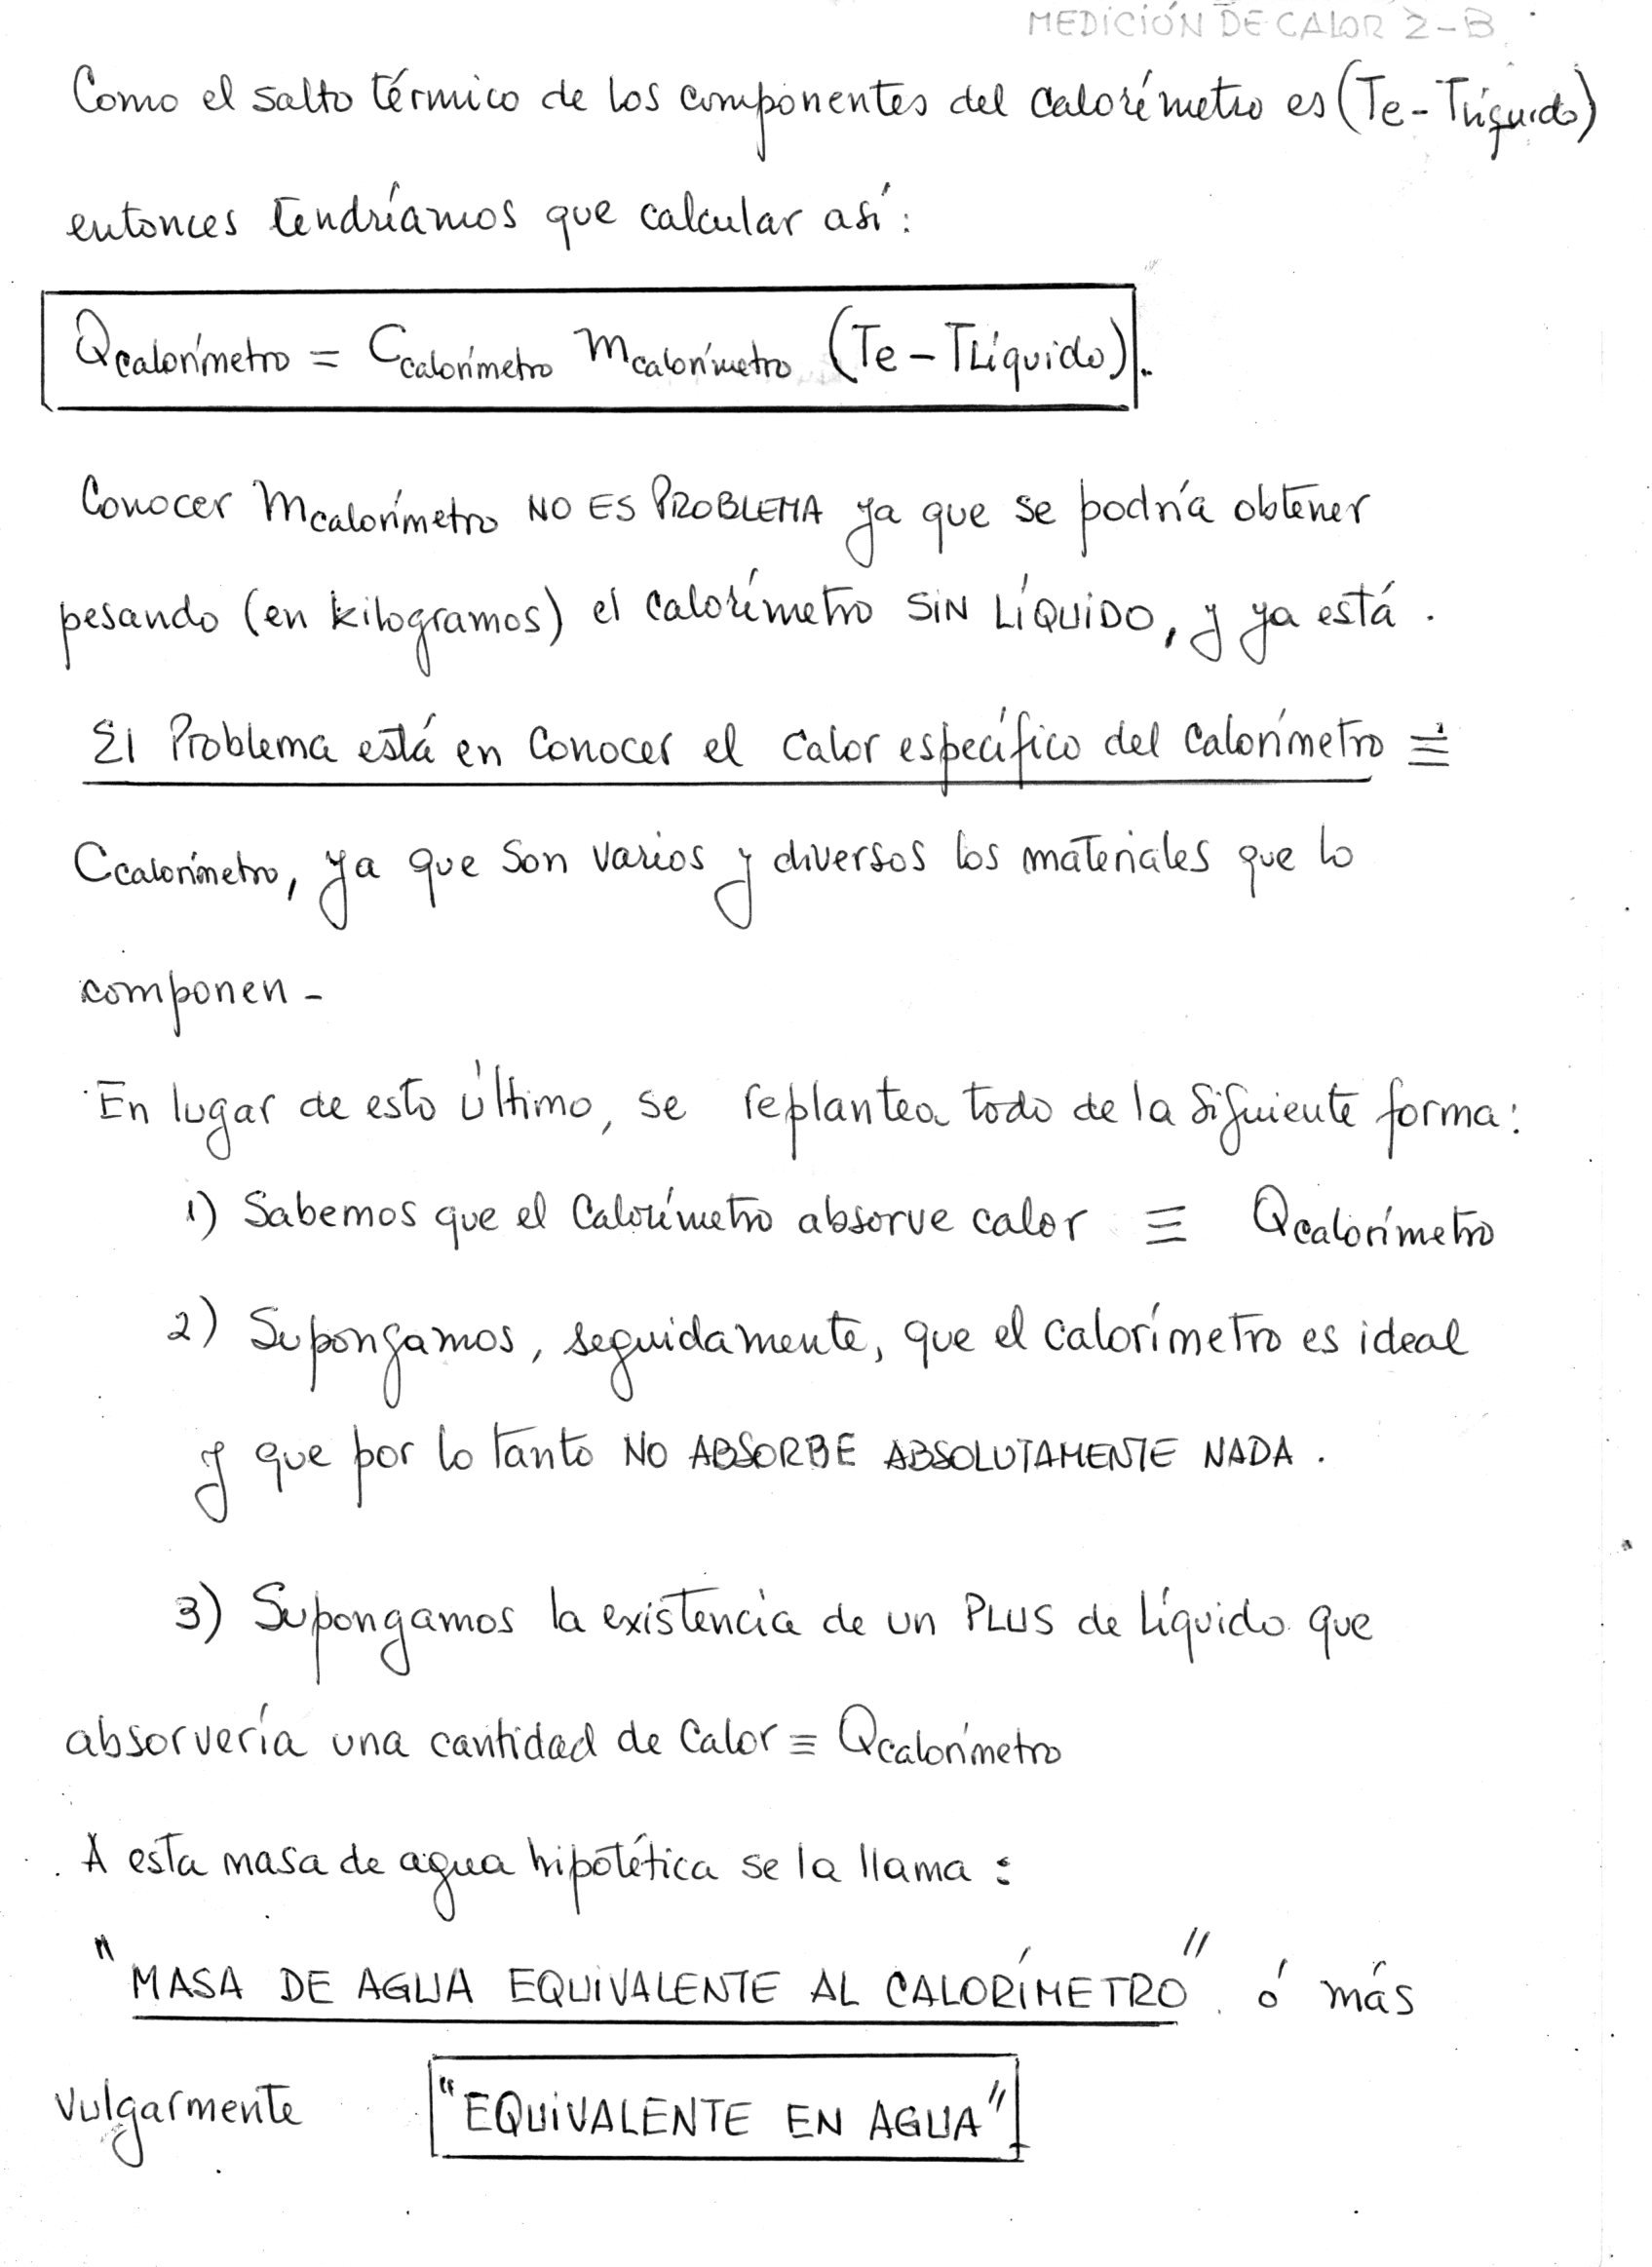 MEDICIÓN DE CALOR 2-B
Como el salto térmico de los componentes del calorímetro es (Te - TLíquido)
entonces tendríamos que calcular así:
Qcalorímetro = Ccalorímetro mcalorímetro (Te - TLíquido).
Conocer mcalorímetro NO ES PROBLEMA ya que se podría obtener
pesando (en kilogramos) el calorímetro SIN LÍQUIDO, y ya está.
El Problema está en Conocer el calor específico del calorímetro ≡
Ccalorímetro, ya que son varios y diversos los materiales que lo
componen -
En lugar de esto último, se replantea todo de la siguiente forma:
1) Sabemos que el Calorímetro absorve calor ≡ Qcalorímetro
2) Supongamos, seguidamente, que el calorímetro es ideal
y que por lo tanto NO ABSORBE ABSOLUTAMENTE NADA.
3) Supongamos la existencia de un PLUS de líquido que
absorvería una cantidad de Calor ≡ Qcalorímetro
A esta masa de agua hipotética se la llama:
"MASA DE AGUA EQUIVALENTE AL CALORÍMETRO" ó más
vulgarmente "EQUIVALENTE EN AGUA"